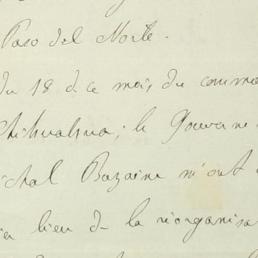 Paso del Norte.
du 18 de ce mois, du comma
Chihuahua; le Gouverne
chal Bazaine m'ont
lieu de la réorganisa